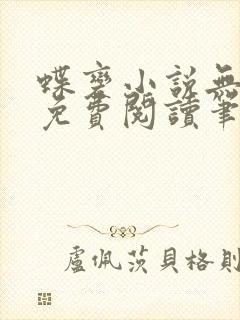 蝶變小說無
免費閱讀筆
盧佩茨貝格則